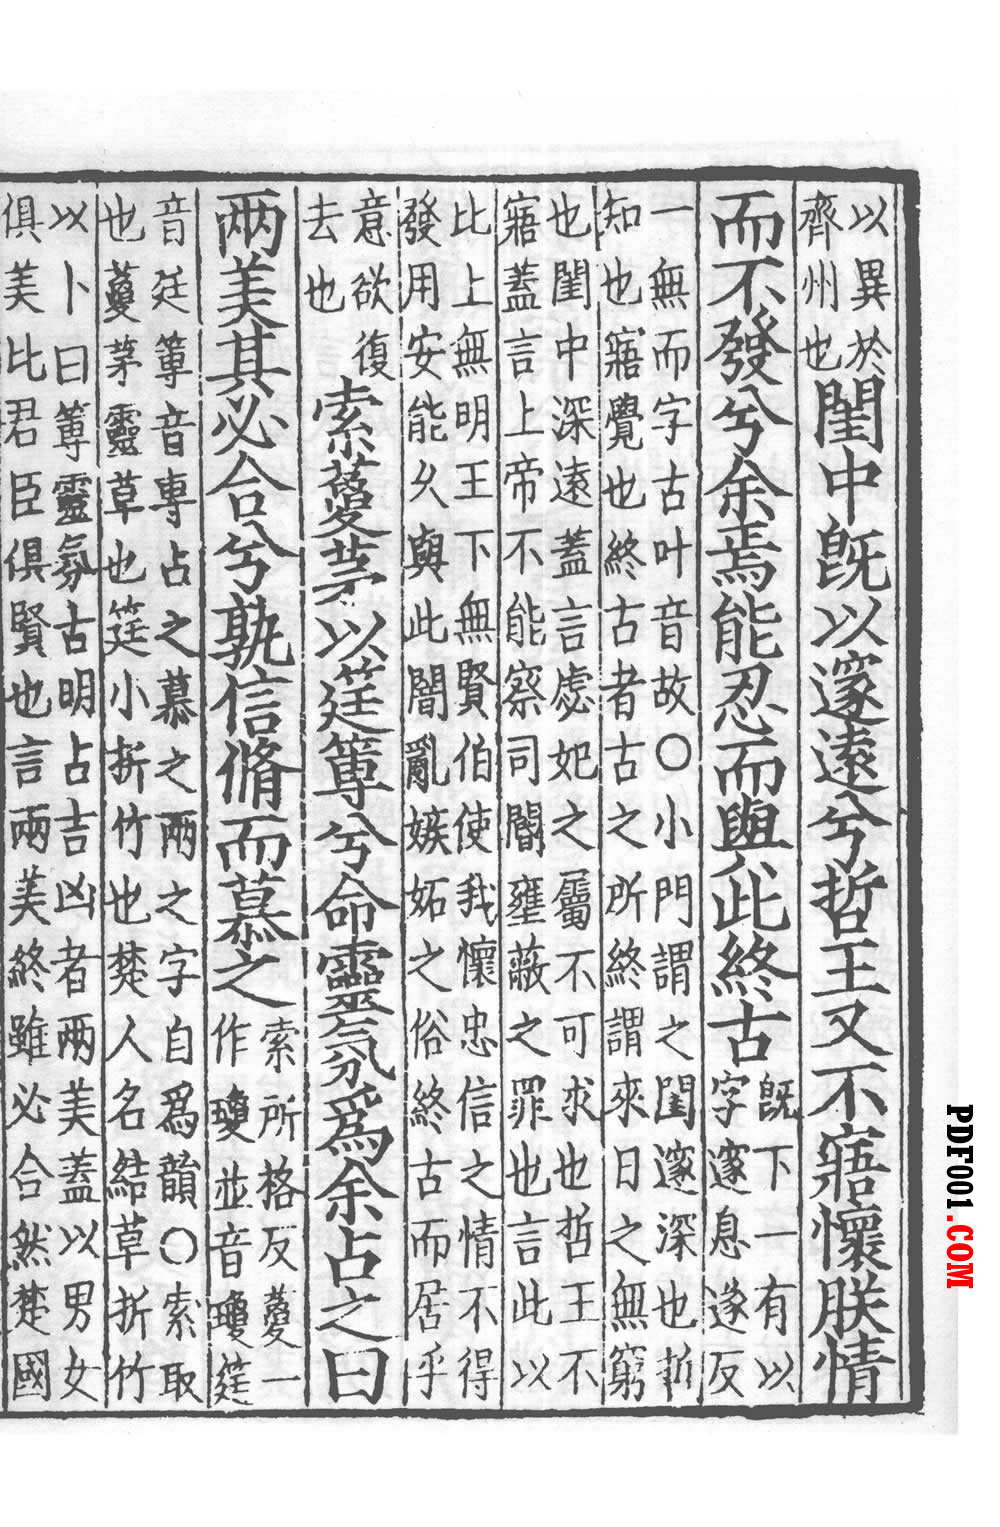 以異於
齊州也
閨中既以邃遠兮哲王又不寤懷朕情
而不發兮余焉能忍而與此終古
既下一有以
字邃息遂反
一無而字古叶音故〇小門謂之閨邃深也哲
知也寤覺也終古者古之所終謂來日之無窮
也閨中深遠蓋言虙妃之屬不可求也哲王不
寤蓋言上帝不能察司閽壅蔽之罪也言此以
比上無明王下無賢伯使我懷忠信之情不得
發用安能乆與此闇亂嫉妬之俗終古而居乎
意欲復
去也
索藑茅以筳篿兮命靈氛爲余占之曰
兩美其必合兮孰信脩而慕之
索所格反藑一
作瓊並音瓊筳
音廷篿音專占之慕之兩之字自爲韻〇索取
也藑茅靈草也筳小折竹也楚人名結草折竹
以卜曰篿靈氛古明占吉凶者兩美蓋以男女
俱美比君臣俱賢也言兩美終雖必合然楚國
PDF001.COM